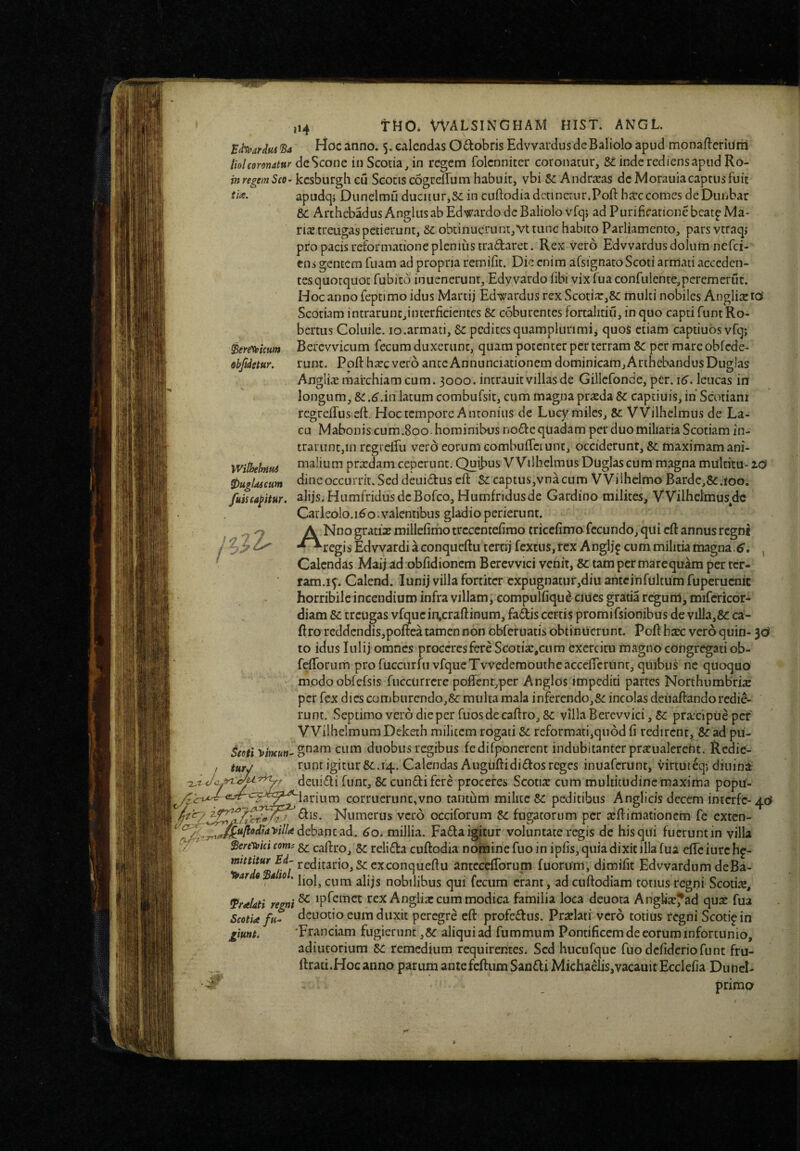 114 THO. VVALSINGHAM HIST. ANGL.
Edwardus Ba
liol coronatur
in regem Sco-
tiæ.
Hoc anno. 5. calendas Octobris Edvvardus de Baliolo apud monasterium
de Scone in Scotia, in regem solenniter coronatur, & inde rediens apud Ro-
kesburgh cū Scotis cōgressum habuit, vbi & Andræas de Morauia captus fuit
apudq; Dunelmū ducitur, & in custodia detinetur. Post hæc comes de Dunbar
& Archebādus Anglus ab Edwardo de Baliolo vsq; ad Purificationē beatę Ma-
riæ treugas petierunt, & obtinuerunt, vt tunc habito Parliamento, pars vtraq;
pro pacis reformatione plenius tractaret. Rex verò Edvvardus dolum nesci-
ens gentem suam ad propria remisit. Die enim assignato Scoti armati acceden-
tes quotquot subitò inuenerunt, Edyvardo sibi vix sua confulente, peremerūt.
Hoc anno septimo idus Martij Edwardus rex Scotiæ, & multi nobiles Angliæ ro
Scotiam intrarunt, interficientes & cōburentes fortalitiū, in quo capti sunt Ro-
bertus Coluile. 10. armati, & pedites quamplurimi, quos etiam captiuos vsq;
Berewicum
obsidetur.
Berevvicum secum duxerunt, quam potenter per terram & per mare obsede-
runt. Post hæc verò ante Annunciationem dominicam, Archebandus Duglas
Angliæ marchiam cum. 3000. intrauit villas de Gillesonde, per. 16. leucas in
longum, & .6. in latum combussit, cum magna præda & captiuis, in Scotiam
regressus est. Hoc tempore Antonius de Lucy miles, & VVilhelmus de La-
cu Mabonis cum .800. hominibus nocte quadam per duo miliaria Scotiam in-
trarunt, in regressu verò eorum combusserunt, occiderunt, & maximam ani-
Wilhelmus
Duglas cum
suis capitur.
malium prædam ceperunt. Quibus VVilhelmus Duglas cum magna multitu- 20
dine occurrit. Sed deuictus est & captus, vnà cum VVilhelmo Barde, & .100.
alijs. Humfridus de Bosco, Humfridus de Gardino milites, VVilhelmus de
Carleolo. 160. valentibus gladio perierunt.
1332
ANno gratiæ millesimo trecentesimo tricesimo secundo, qui est annus regni
regis Edvvardi à conquestu tertij sextus, rex Anglię cum militia magna 6.
Calendas Maij ad obsidionem Berevvici venit, & tam per mare quàm per ter-
ram. 15. Calend. Iunij villa fortiter expugnatur, diu ante insultum superuenit
horribile incendium infra villam, compulsique ciues gratiā regum, misericor-
diam & treugas vsque in crastinum, factis certis promissionibus de villa, & ca-
stro reddendis, posteà tamen non obseruatis obtinuerunt. Post hæc verò quin- 30
to idus Iulij omnes proceres ferè Scotiæ, cum exercitu magno congregati ob-
sessorum pro succursu vsque Tvvedemouthe accesserunt, quibus ne quoquo
modo obsessis succurrere possent, per Anglos impediti partes Northumbriæ
per sex dies comburendo, & multa mala inferendo, & incolas deuastando rediè-
runt. Septimo verò die per suos de castro, & villa Berevvici, & præcipuè per
VVilhelmum Deketh militem rogati & reformati, quòd si redirent, & ad pu-
Scoti vincun-
tur.
gnam cum duobus regibus se disponerent indubitanter præualerent. Redie-
runt igitur & .14. Calendas Augusti dictos reges inuaserunt, virtutéq; diuina
deuicti sunt, & cuncti ferè proceres Scotiæ cum multitudine maxima popu-
larium corruerunt, vno tantùm milite & peditibus Anglicis decem interfe- 40
ctis. Numerus verò occisorum & fugatorum per æstimationem se exten-
Custodia villæ
Berewici comi
mittitur Ed-
wardo Baliol.
debant ad. 60. millia. Facta igitur voluntate regis de his qui fuerunt in villa
& castro, & relicta custodia nomine suo in ipsis, quia dixit illa sua esse iure hę-
reditario, & ex conquestu antecessorum suorum, dimisit Edvvardum de Ba-
liol, cum alijs nobilibus qui secum erant, ad custodiam totius regni Scotiæ,
Prælati regni
Scotiæ fu-
giunt.
& ipsemet rex Angliæ cum modica familia loca deuota Angliæ, ad quæ sua
deuotio eum duxit peregrè est profectus. Prælati verò totius regni Scotię in
Franciam fugierunt, & aliqui ad summum Pontificem de eorum infortunio,
adiutorium & remedium requirentes. Sed hucusque suo desiderio sunt fru-
strati. Hoc anno parum ante festum Sancti Michaëlis, vacauit Ecclesia Dunel-
primo